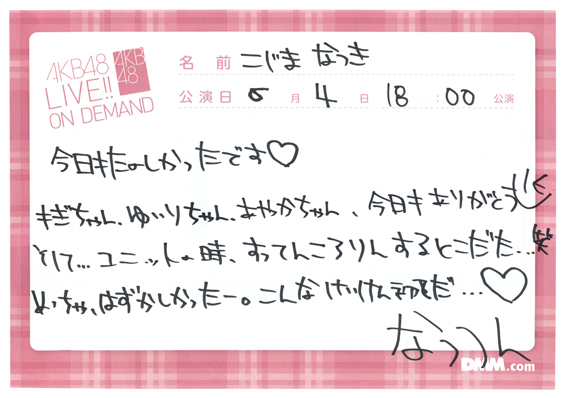 AKB48
LIVE!!
ON DEMAND
AKB
48
名前 こじま なつき
公演日 5月4日 18:00公演
今日もたのしかったです♡
もぎちゃん、ゆいりちゃん、あやかちゃん、今日もありがとう
そして…ユニットの時、すってんころりんするとこだた…笑
めっちゃ、はずかしかったー。こんなけいけん初めてだ…♡
なっつん
DMM.com